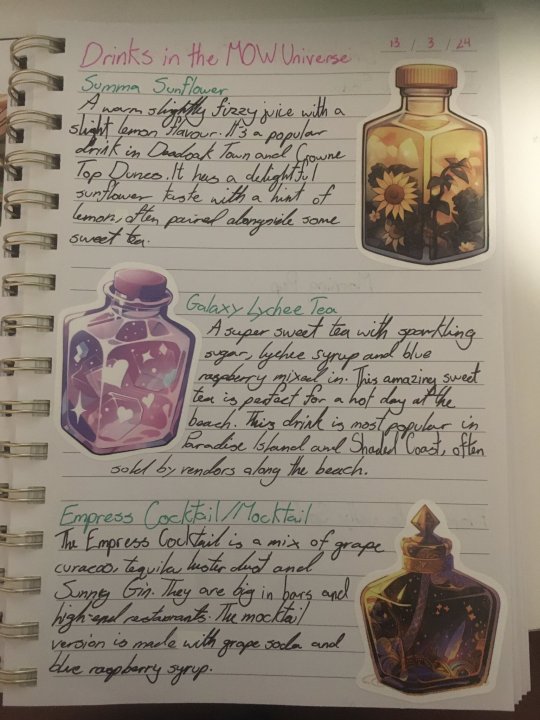 Drinks in the MOW Universe
13 / 3 / 24
Summa Sunflower
A warm slightly fizzy juice with a
slight lemon flavour. It's a popular
drink in Deadoak Town and Crowne
Top Dunes. It has a delightful
sunflower taste with a hint of
lemon, often paired alongside some
sweet tea.
Galaxy Lychee Tea
A super sweet tea with sparkling
sugar, lychee syrup and blue
raspberry mixed in. This amazing sweet
tea is perfect for a hot day at the
beach. This drink is most popular in
Paradise Island and Shaded Coast, often
sold by vendors along the beach.
Empress Cocktail/Mocktail
The Empress Cocktail is a mix of grape
curacao, tequila, luster dust and
Gin. They are big in bars and
high-end restaurants. The mocktail
version is made with grape soda and
blue raspberry syrup.